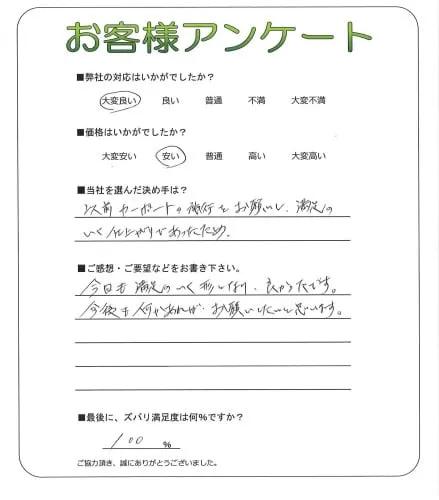 お客様アンケート
■弊社の対応はいかがでしたか?
大変良い 良い 普通 不満 大変不満
■価格はいかがでしたか?
大変安い 安い 普通 高い 大変高い
■当社を選んだ決め手は?
以前カーポートの施行をお願いし、満足の
いく仕上がりであったため.
■ご感想・ご要望などをお書き下さい。
今回も満足のいく形となり、良かったです。
今後も何かあれば、お願いしたいと思います。
■最後に、ズバリ満足度は何%ですか?
100 %
ご協力頂き、誠にありがとうございました。